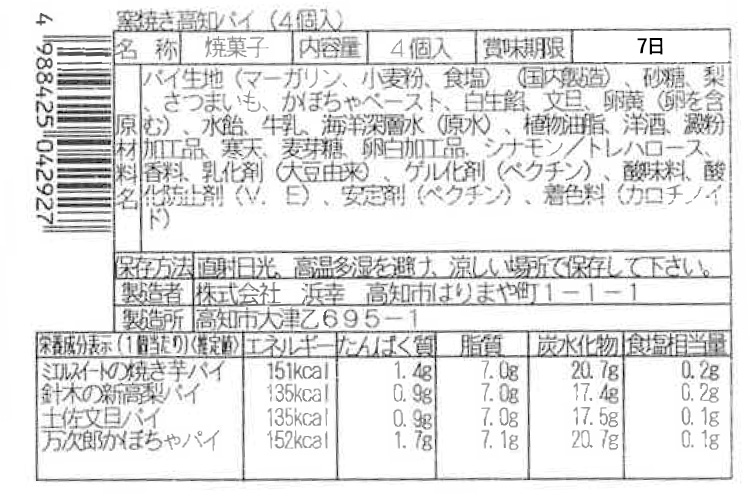 窯焼き高知パイ（4個入）
名 称 焼菓子 内容量 4個入 賞味期限 7日
原材料名
パイ生地（マーガリン、小麦粉、食塩）（国内製造）、砂糖、梨
、さつまいも、かぼちゃペースト、白生餡、文旦、卵黄（卵を含
む）、水飴、牛乳、海洋深層水（原水）、植物油脂、洋酒、澱粉
加工品、寒天、麦芽糖、卵白加工品、シナモン／トレハロース、
香料、乳化剤（大豆由来）、ゲル化剤（ペクチン）、酸味料、酸
化防止剤（V．E）、安定剤（ペクチン）、着色料（カロチノイ
ド）
保存方法 直射日光、高温多湿を避け、涼しい場所で保存して下さい。
製造者 株式会社 浜幸 高知市はりまや町1－1－1
製造所 高知市大津乙695－1
栄養成分表示（1個当たり）（推定値） エネルギー たんぱく質 脂質 炭水化物 食塩相当量
ミエルスイートの焼き芋パイ 151kcal 1.4g 7.0g 20.7g 0.2g
針木の新高梨パイ 135kcal 0.9g 7.0g 17.4g 0.2g
土佐文旦パイ 135kcal 0.9g 7.0g 17.5g 0.1g
万次郎かぼちゃパイ 152kcal 1.7g 7.1g 20.7g 0.1g
4 988425 042927